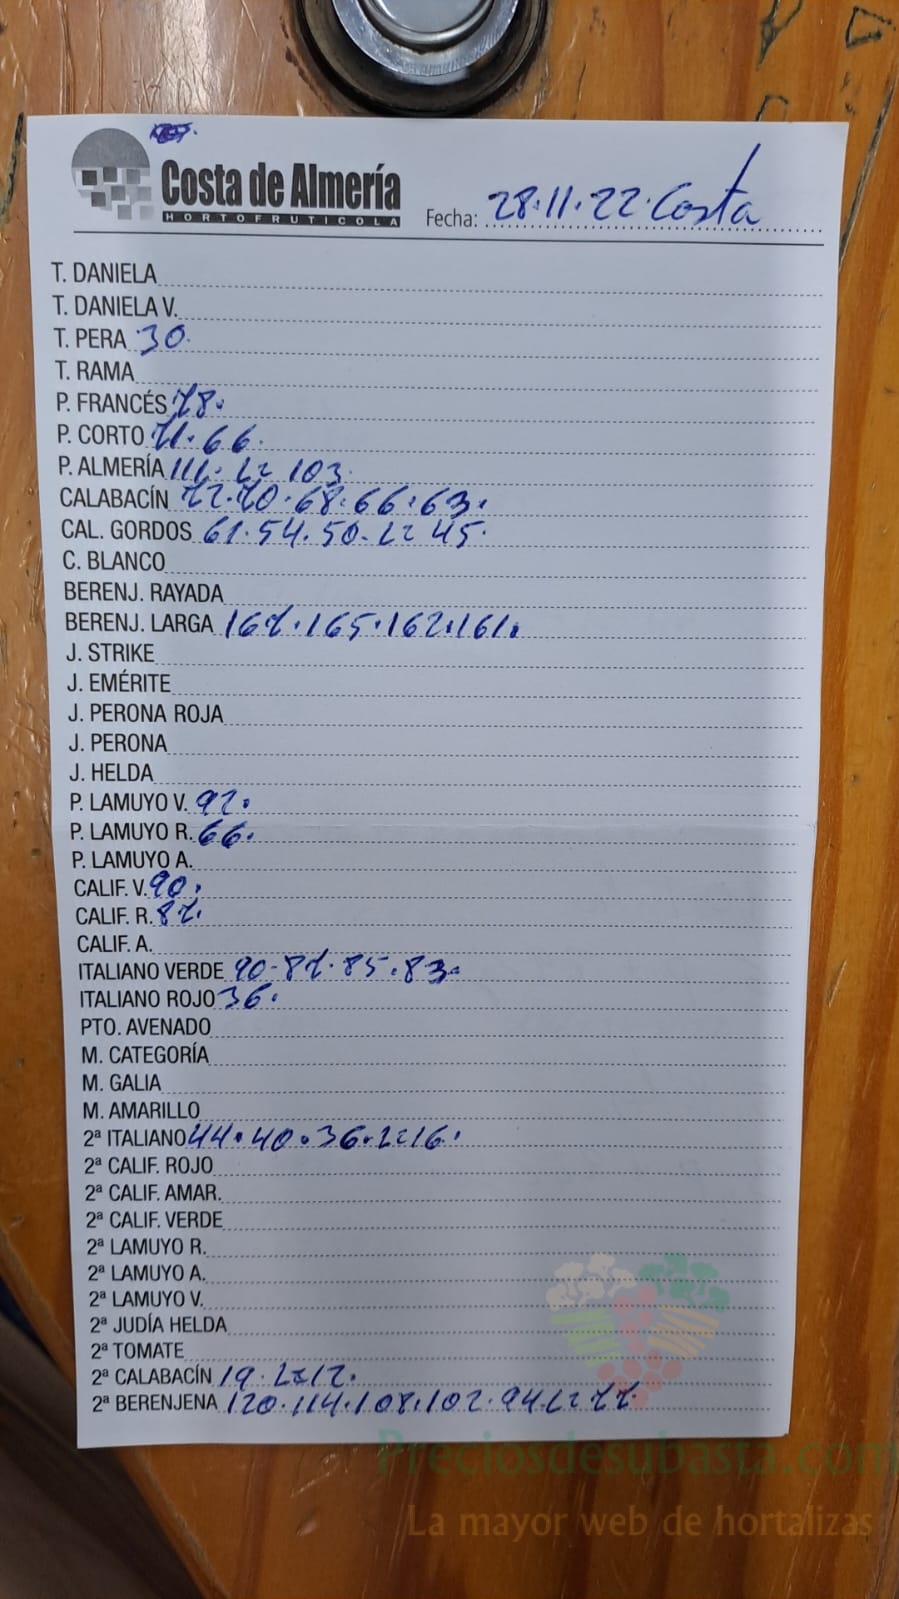 Costa de Almería
HORTOFRUTICOLA
Fecha: 28.11.22. Costa
T. DANIELA
T. DANIELA V.
T. PERA 30.
T. RAMA
P. FRANCÉS 78.
P. CORTO 71. 66.
P. ALMERÍA 111. 103.
CALABACÍN 72. 70. 68. 66. 63.
CAL. GORDOS 61. 54. 50. 45.
C. BLANCO
BERENJ. RAYADA
BERENJ. LARGA 167. 165. 162. 161.
J. STRIKE
J. EMÉRITE
J. PERONA ROJA
J. PERONA
J. HELDA
P. LAMUYO V. 92.
P. LAMUYO R. 66.
P. LAMUYO A.
CALIF. V. 90.
CALIF. R. 87.
CALIF. A.
ITALIANO VERDE 90. 87. 85. 83.
ITALIANO ROJO 36.
PTO. AVENADO
M. CATEGORÍA
M. GALIA
M. AMARILLO
2ª ITALIANO 44. 40. 36. 16.
2ª CALIF. ROJO
2ª CALIF. AMAR.
2ª CALIF. VERDE
2ª LAMUYO R.
2ª LAMUYO A.
2ª LAMUYO V.
2ª JUDÍA HELDA
2ª TOMATE
2ª CALABACÍN 19. 12.
2ª BERENJENA 120. 114. 108. 102. 94. 77.
Preciosdesubasta.com
La mayor web de hortalizas